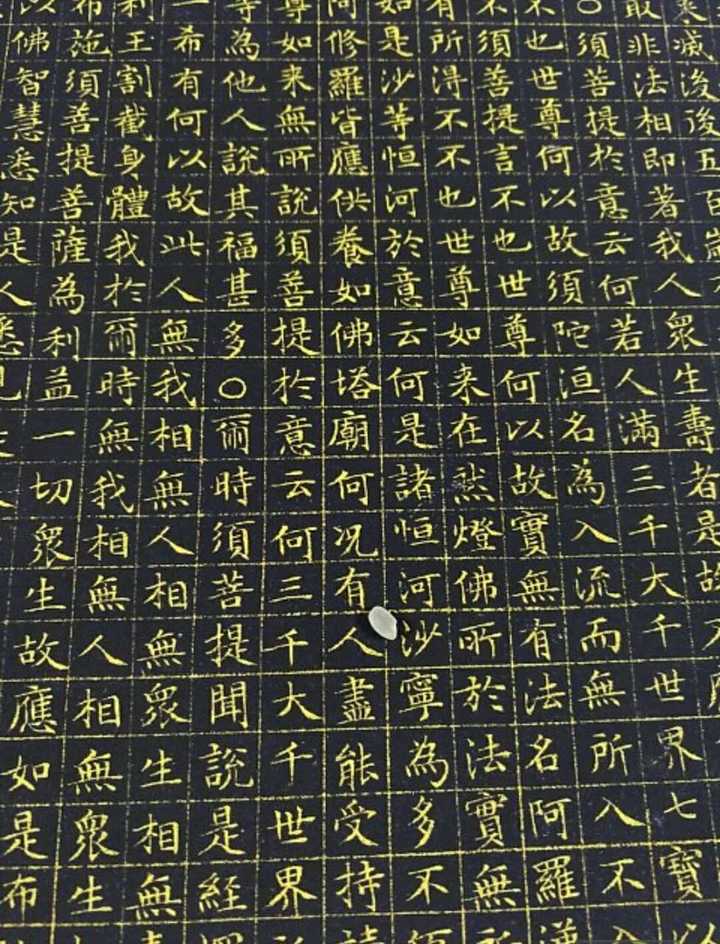 来滅後後五百歲
取非法相即著我人衆生壽者是故不
〇須菩提於意云何若人滿三千大千世界七寶以
不也世尊何以故須陀洹名為入流而無所入不入
不須菩提言不也世尊何以故實無有法名阿羅漢
有所得不不也世尊如来在然燈佛所於法實無所
如是沙等恒河於意云何是諸恒河沙寧為多不須
何修羅皆應供養如佛塔廟何况有人盡能受持讀
尊如来無所說須菩提於意云何三千大千世界所
等為他人說其福甚多〇爾時須菩提聞說是經深
一希有何以故此人無我相無人相無衆生相無壽
利王割截身體我於爾時無我相無人相無衆生相
布施須菩提菩薩為利益一切衆生故應如是布
以佛智慧悉知是人悉見